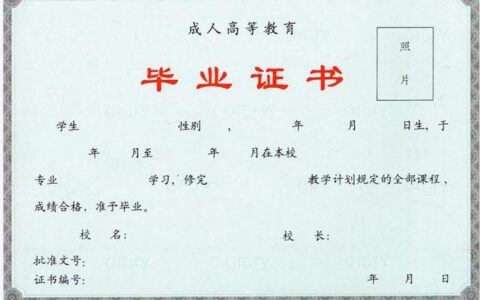 成人高等教育
毕业证书
照
片
学生 性别 , 年 月 日生,于
年 月至 年 月在本校
专业 学习,修完 教学计划规定的全部课程,
成绩合格,准予毕业。
校 名: 校 长:
批准文号:
证书编号: 年 月 日